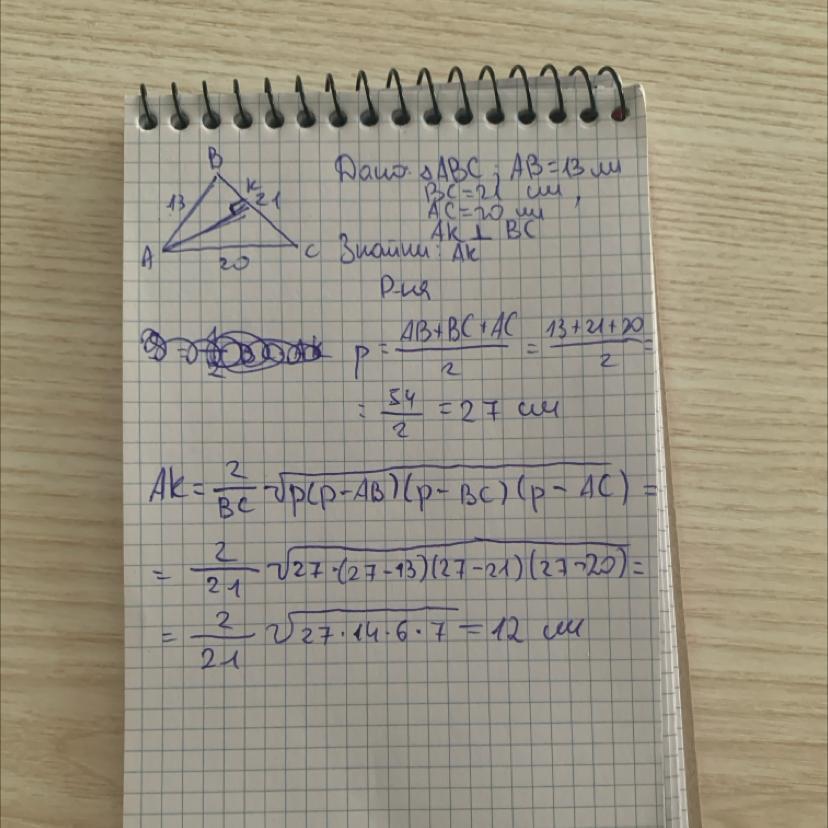 B
K
13
21
A
C
20
Дано: △ABC; AB=13 см
BC=21 см,
AC=20 см
AK ⊥ BC
Знайти: AK
Р-ня
p = \frac{AB+BC+AC}{2} = \frac{13+21+20}{2} =
= \frac{54}{2} = 27 см
AK = \frac{2}{BC} \sqrt{p(p-AB)(p-BC)(p-AC)} =
= \frac{2}{21} \sqrt{27·(27-13)(27-21)(27-20)} =
= \frac{2}{21} \sqrt{27·14·6·7} = 12 см